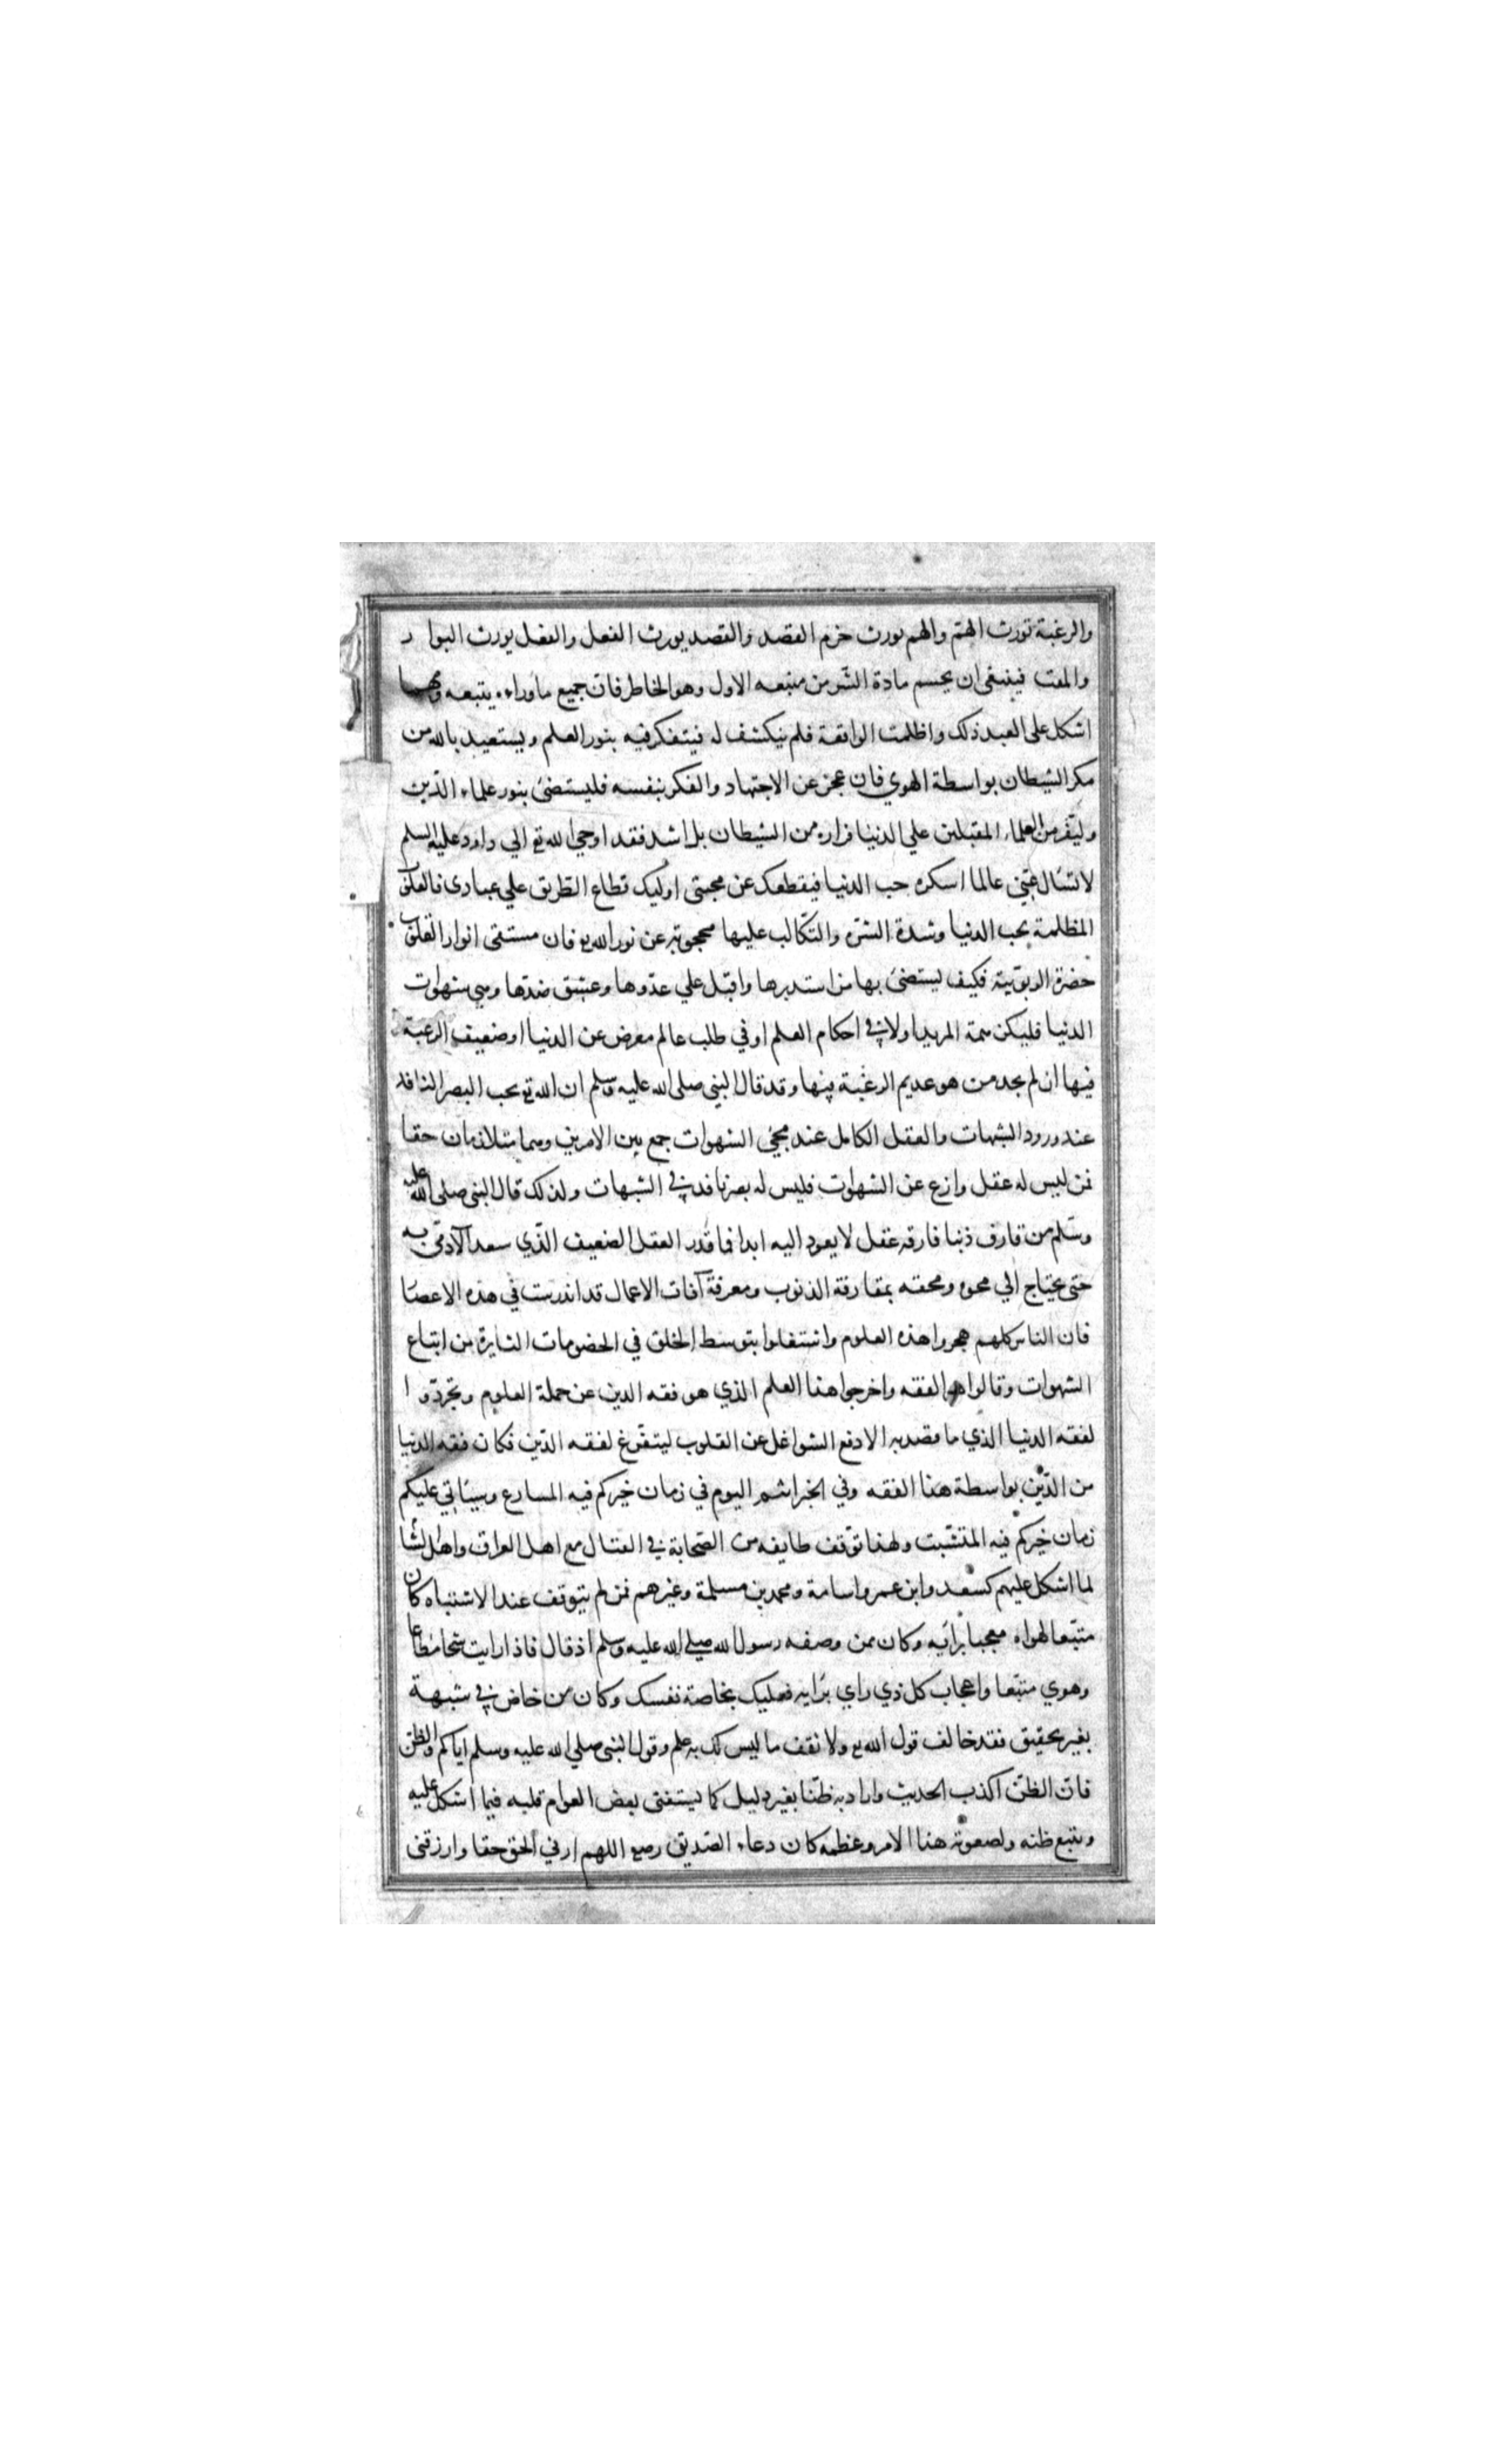 والرغبة تورث الهتم والهم يورث خرم القصد والقصد يورث الفعل والفعل يورث البوا ر
والمقت فينبغى ان يحسم مادة الشر من منبعه الاول وهو الخاطر فان جميع ماوراءه يتبعه ومهما
اشكل على العبد ذلك واظلمت الواقعة فلم ينكشف له فيتفكر فيه بنور العلم ويستعيد بالله من
مكر الشيطان بواسطة الهوي فان عجز عن الاجتهاد والفكر بنفسه فليستضئ بنور علماء الدّين
وليفر من العلماء المقبلين علي الدنيا فراره من الشيطان بل اشد فقد اوحي الله تع الي داود عليه السلم
لا تسال عنّي عالما اسكره حب الدنيا فيقطعك عن محبتى اوليك قطاع الطريق علي عبادى فالقلوب
المظلمة بحب الدنيا وشدة الشره والتكالب عليها محجوبة عن نور الله تع فان مستقى انوار القلوب
حضرة الربوبّية فكيف يستضئ بها من استدبرها واقبل علي عدّوها وعشق ضدّها وهي شهوات
الدنيا فليكن همة المريد اولا في احكام العلم او في طلب عالم معرض عن الدنيا او ضعيف الرغبة
فيها ان لم يجد من هو عديم الرغبة فيها وقد قال النبي صلى الله عليه وسلم ان الله تع يحب البصر النافد
عند ورود الشبهات والعقل الكامل عند مجئ الشهوات جمع بين الامرين وهما متلازمان حقا
فمن ليس له عقل وازع عن الشهوات فليس له بصر نافد في الشبهات ولذلك قال النبى صلى الله عليه
وسّلم من قارف ذنبا فارقه عقل لا يعود اليه ابدا فما قدر العقل الضعيف الّذي سعد الآدمّى به
حتى يحتاج الي محوه ومحقه بمقارقة الذنوب ومعرفة آفات الاعمال قد اندرست في هذه الاعصا
فان الناس كلهم هجروا هذه العلوم واشتغلوا بتوسط الخلق في الخصومات الثايرة من اتباع
الشهوات وقالوا هو الفقه واخرجوا هذا العلم الذي هو فقه الدين عن حملة العلوم وتجردّو ا
لفقه الدنيا الذي ما قصد به الا دفع الشواغل عن القلوب ليتفّرغ لفقه الدّين فكان فقه الدنيا
من الدّين بواسطة هذا الفقه وفي الخبر انتم اليوم في زمان خيركم فيه المسارع وسياتي عليكم
زمان خيركم فيه المتثبت ولهذا توّقف طايفه من الصّحابة في القتال مع اهل العراق واهل الشا
لما اشكل عليهم كسعد وابن عمر واسامة ومحمد بن مسلمة وغيرهم فمن لم يتوقف عند الاشتباه كان
متبّعا لهواه معجبا برايه وكان ممن وصفه رسول لله صلي الله عليه وسلم اذ قال فاذا رايت شحا مطاعا
وهوي متبّعا واعجاب كل ذي راي برايه فعليك بخاصة نفسك وكان من خاض في شبهة
بغير تحقيق فقد خالف قول الله تع ولا تقف ما ليس لك به علم وقول النبى صلي الله عليه وسلم اياكم والظن
فان الظنّ اكذب الحديث واراد به ظنّا بغير دليل كما يستفتى بعض العوام قلبه فيما اشكل عليه
ويتبع ظنه ولصعوبة هذا الامر وعظمه كان دعاء الصّديق رضع اللهم ارني الحق حقا وارزقنى